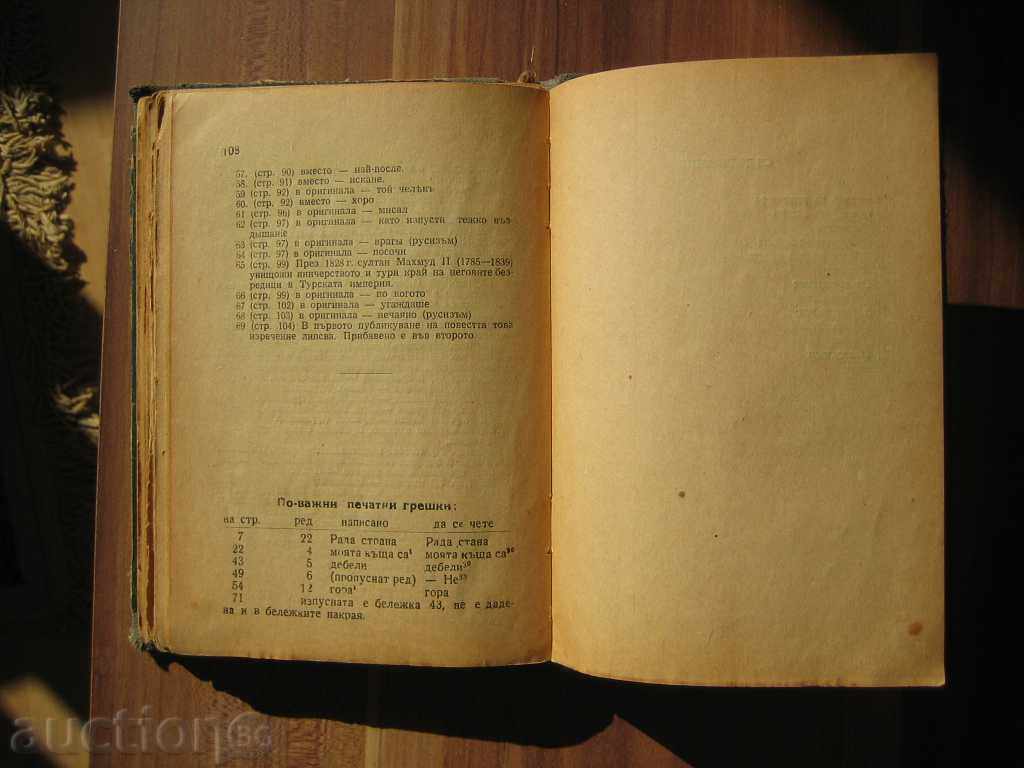 108
57. (стр. 90) вместо — най-после.
58. (стр. 91) вместо — искане.
59 (стр. 92) в оригинала — той челѣкъ
60. (стр. 92) вместо — хоро
61 (стр. 96) в оригинала — мисал
62 (стр. 97) в оригинала — като изпусти тежко въз-
дышание
63 (стр. 97) в оригинала — врагы (русизъм)
64 (стр. 97) в оригинала — посочи
65 (стр. 99) През 1828 г. султан Махмуд II (1785—1839)
унищожи иничерството и тури край на неговите без-
редици в Турската империя.
66 (стр. 99) в оригинала — по когото
67 (стр. 102) в оригинала — угаждаше
68 (стр. 103) в оригинала — нечаяно (русизъм)
69 (стр. 104) В първото публикуване на повестта това
изречение липсва. Прибавено е във второто
По-важни печатни грешки:
на стр. ред написано да се чете
7 22 Рада страна Рада стана
22 4 моята къща са¹ моята къща са³⁰
43 5 дебели дебели³⁰
49 6 (пропуснат ред) — Не³³
54 12 гора¹ гора
71 изпусната е бележка 43, не е даде-
на и в бележките накрая.
auction BG